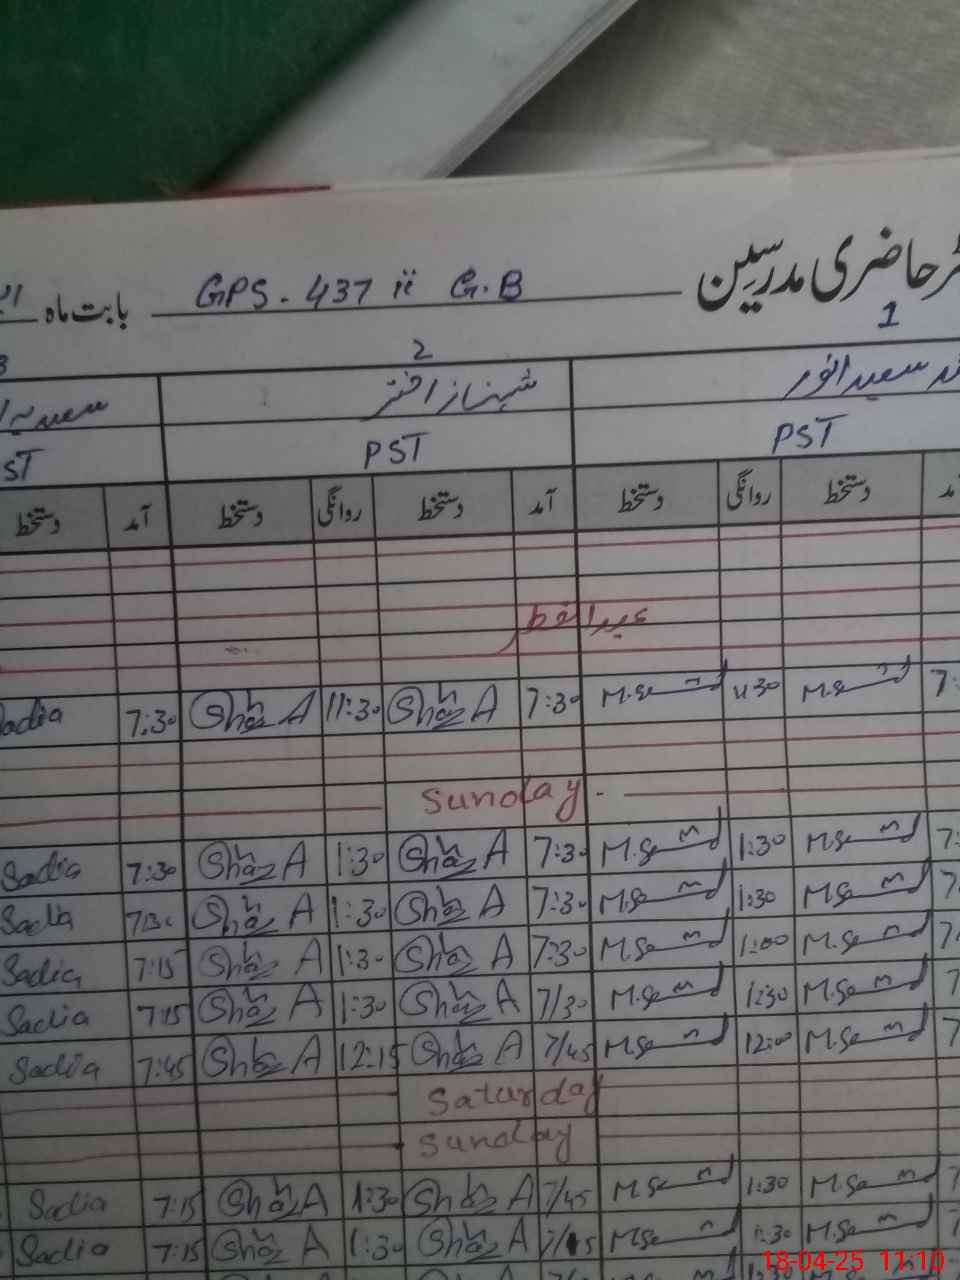 حاضری مدرسین GPS - 437 ii G.B بابت ماہ
1 2 3
سعید انور شہناز اختر سعدیہ
PST PST ST
دستخط روانگی دستخط آمد دستخط روانگی دستخط آمد دستخط
عیدالفطر
7: M.Sa 11:30 M.Sa 7:30 Shaz A 11:30 Shaz A 7:30 Sadia
Sunday
7: M.Sa 1:30 M.Sa 7:30 Shaz A 1:30 Shaz A 7:30 Sadia
7 M.Sa 1:30 M.Sa 7:30 Shaz A 1:30 Shaz A 7:30 Sadia
7 M.Sa 1:00 M.Sa 7:30 Shaz A 1:30 Shaz A 7:15 Sadia
7 M.Sa 1:30 M.Sa 7/30 Shaz A 1:30 Shaz A 7:15 Sadia
7 M.Sa 12:00 M.Sa 7/45 Shaz A 12:15 Shaz A 7:45 Sadia
Saturday
Sunday
7 M.Sa 1:30 M.Sa 7/45 Shaz A 1:30 Shaz A 7:15 Sadia
M.Sa 1:30 M.Sa 7/15 Shaz A 1:30 Shaz A 7:15 Sadia
18-04-25 11:10